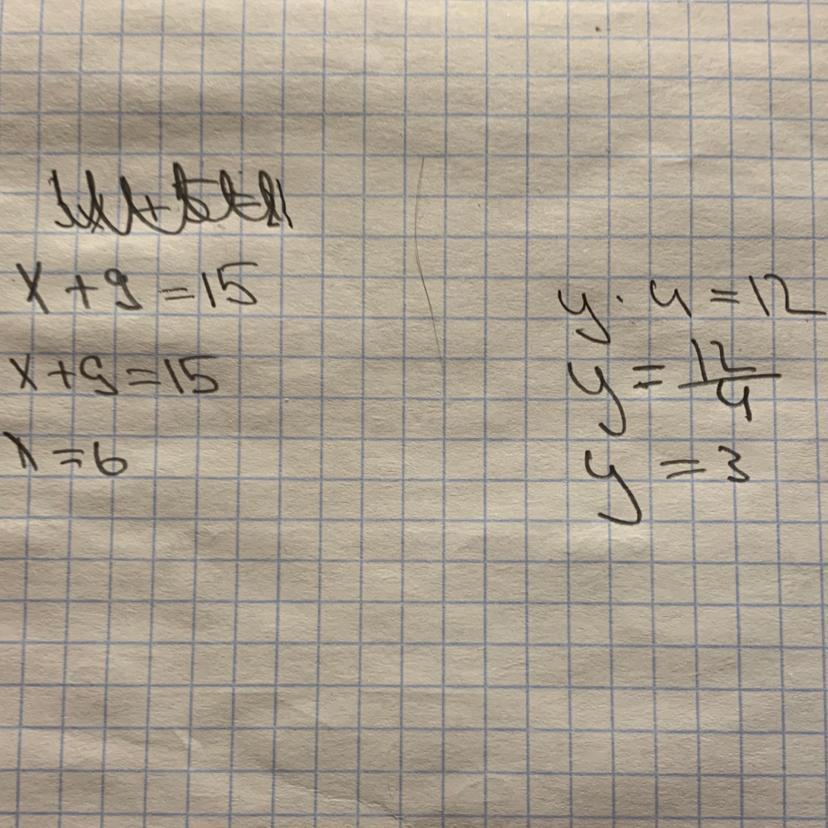 x + 9 = 15
x + 9 = 15
x = 6
y · 4 = 12
y = 12/4
y = 3